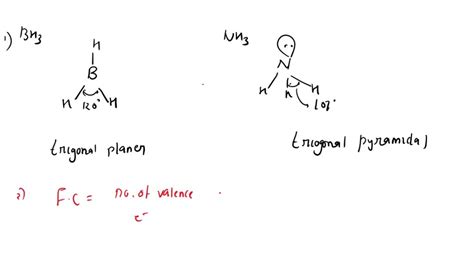 1) BH3 NH3
H
B N
H 120° H H H H 107°
trigonal planer trigonal pyramidal
2) F.C = no. of valence
e-